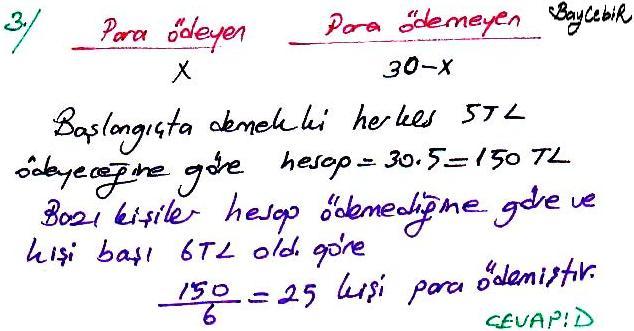 3./ Para ödeyen Para ödemeyen BayCebiR
X 30-X
Başlangıçta demek ki herkes 5TL
ödeyeceğine göre hesap = 30.5 = 150 TL
Bazı kişiler hesap ödemediğine göre ve
kişi başı 6TL old. göre
150/6 = 25 kişi para ödemiştir.
CEVAP:D